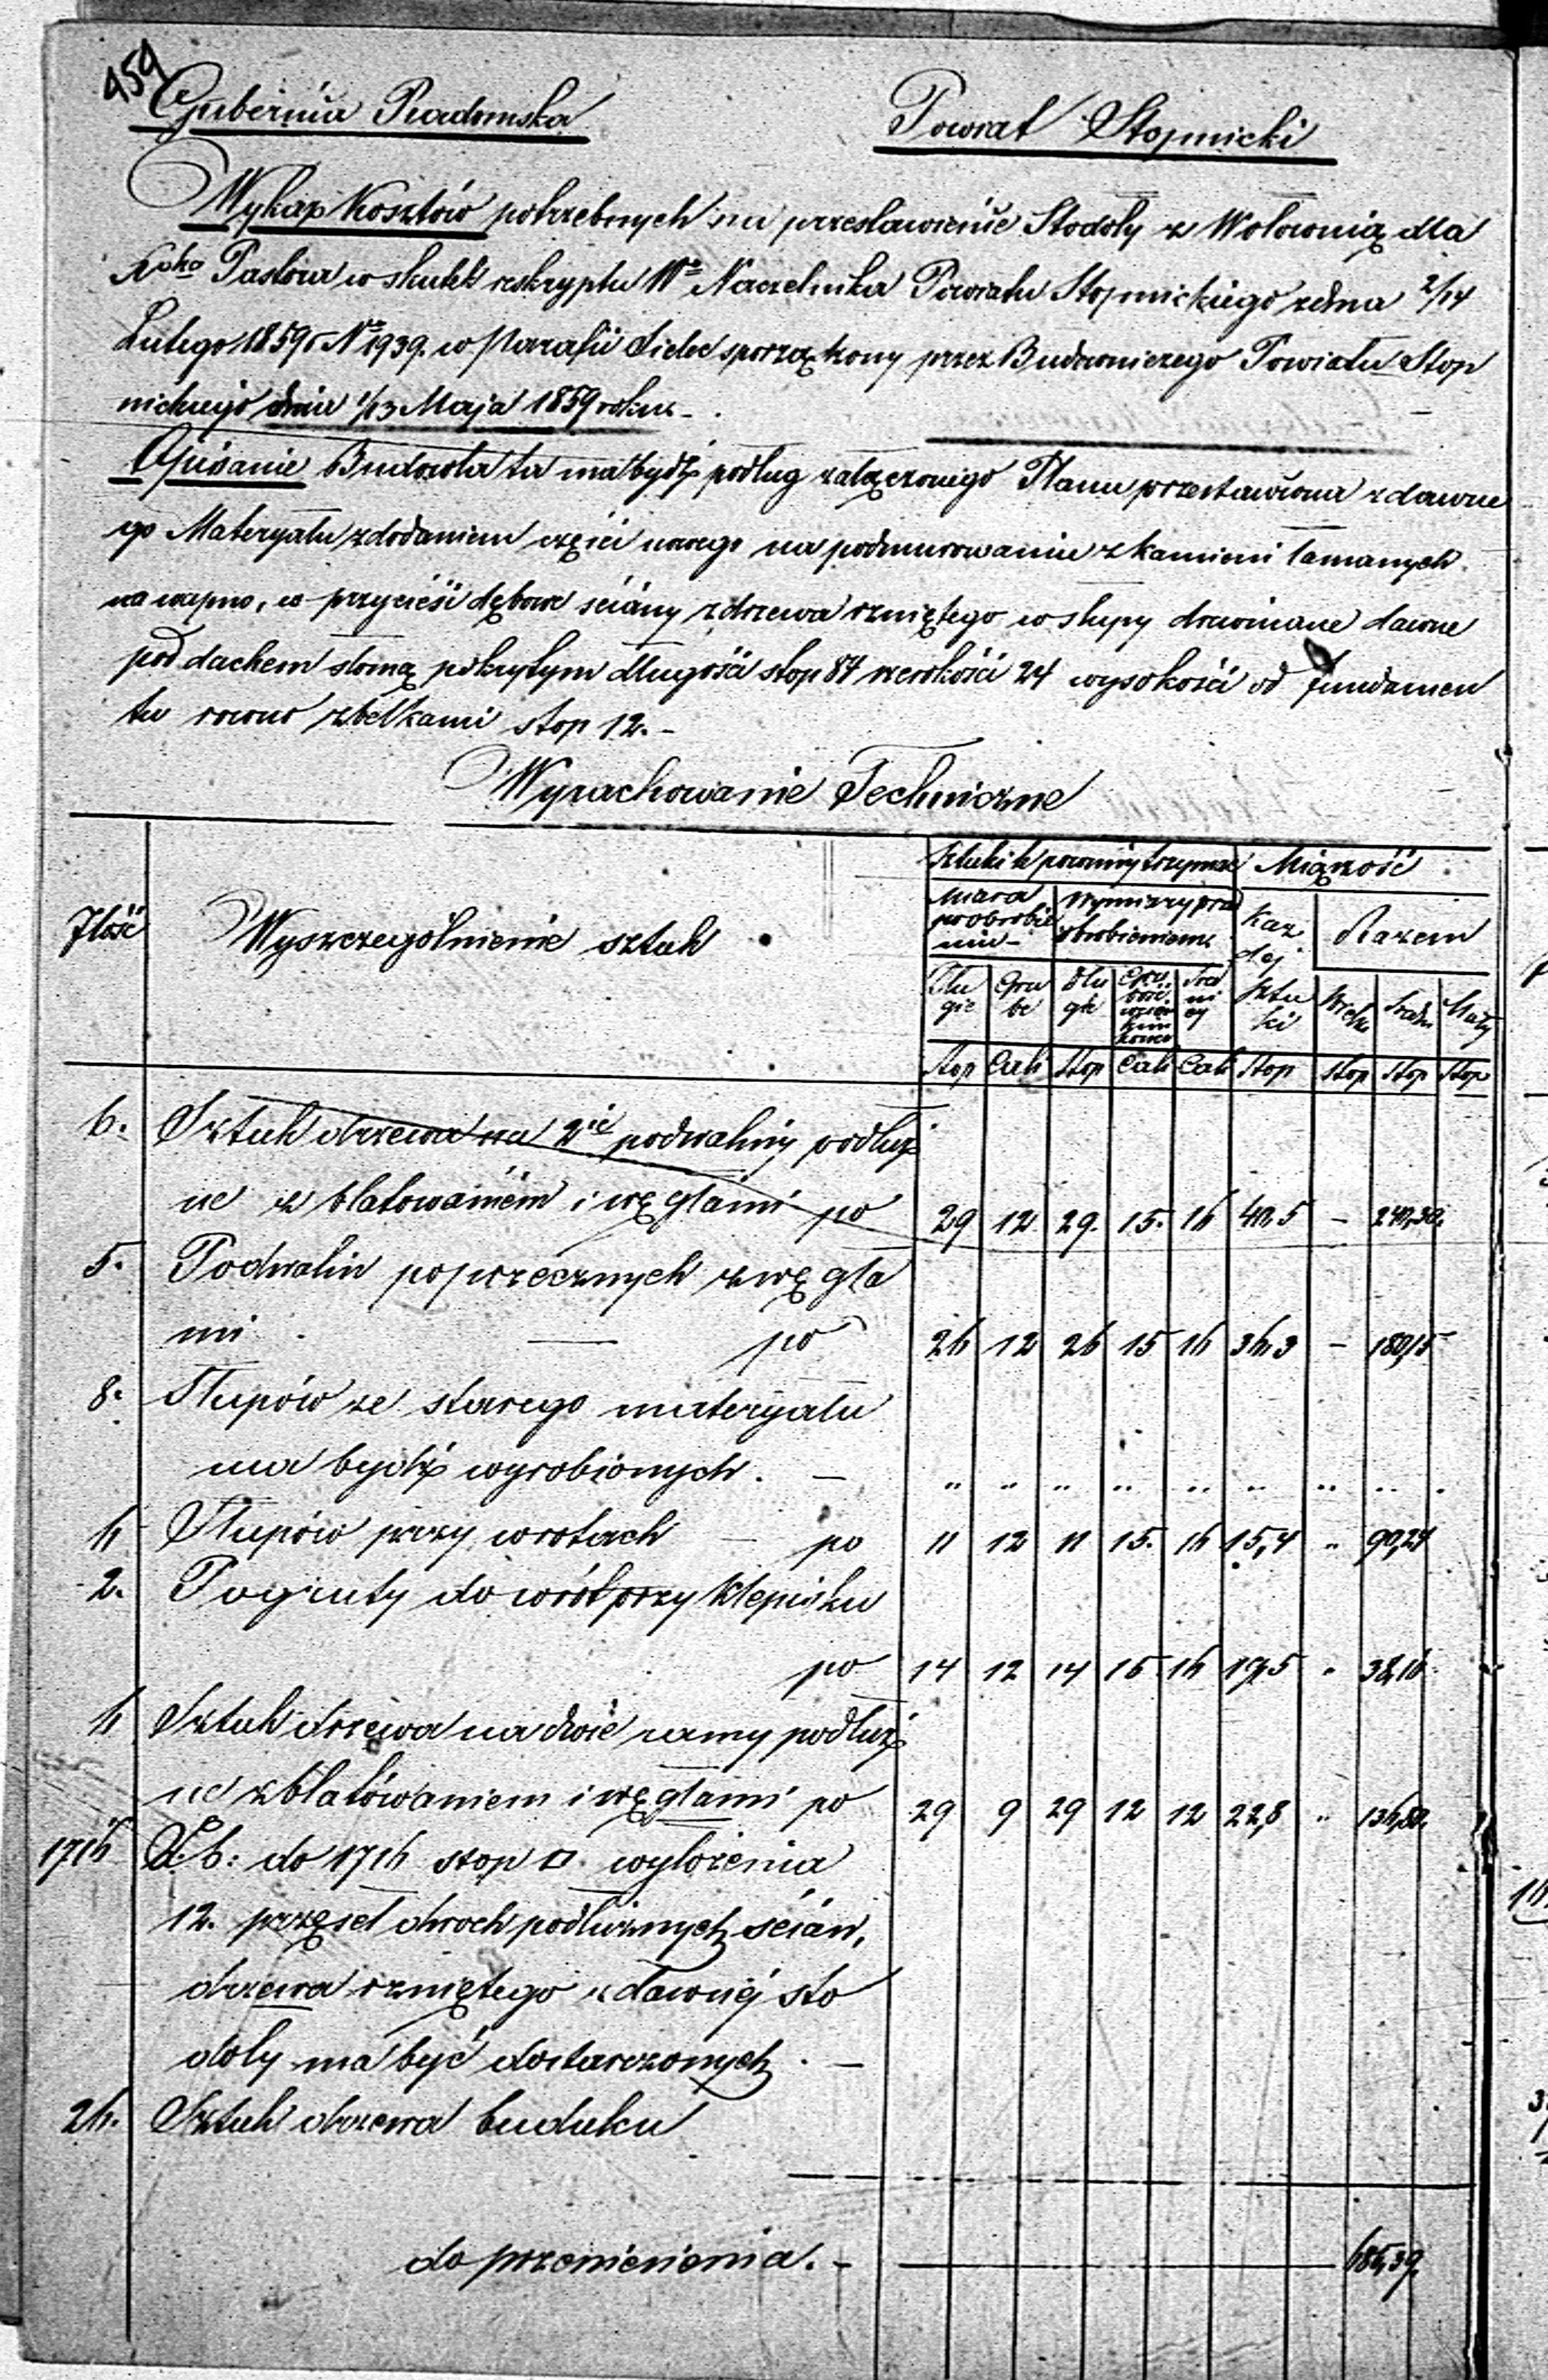 959
Gubernia Radomska Powiat Stopnicki
Wykaz Kosztów potrzebnych na przestawienie Stodoły z Wołownią dla
Xdza Pastora w skutek reskryptu Wo Naczelnika Powiatu Stopnickiego z dnia 2/14
Lutego 1859 r No 1939. w Parafii Sielec sporządzony przez Budowniczego Powiatu Stop
nickiego dnia 1/13 Maja 1859 roku.
Opisanie Budowla ta ma bydź podług załączonego Planu przestawiona z dawne
go Materyału z dodaniem części nowego na podmurowaniu z kamieni łamanych
na wapno, w przycieśi dębowe ściany z drzewa rzniętego w słupy drewniane dawne
pod dachem słomą pokrytym długości stop 87 szerokości 24 wysokości od fundamen
tu rowno z belkami stop 12.-
Wyrachowanie Techniczne
Ilość Wyszczególnienie sztuk
Sztuki te powinny trzymać Miąższość
miara po obrobie niu - wymiary przed obrobieniem każ dej sztu ki Razem
Dłu gie Gru be Dłu gie Śred ni ey Wielki Średni Mały
Stop Cali Stop Cali Cali Stop Stop Stop Stop
6. Sztuk drzewa na 2ie podwaliny podłuż
ne z blatowaniem i węgłami po 29 12 29. 15. 16 40,5 - 240,30.
5. Podwalin poprzecznych z węgła
mi — po 26 12 26 15 16 36,3 - 180,15
8. Słupów ze starego materyału
ma bydź wyrobionych. — „ „ „ „ „ „ „ „
6 Słupów przy wrotach — po 11 12 11 15. 16 15,4 „ 90,24
2. Pogruty do wrót przy klepisku
po 14 12 14 15. 16 19,5 „ 38,10
6 Sztuk drzewa na dwie ramy podłuż
ne z blatowaniem i węgłami po 29 9 29 12 12 22,8 „ 136,80.
1716 Lb: do 1716 stop □. wyłożenia
12. przęseł dwoch podłużnych ścian,
drzewa rzniętego z dawnéj sto
doły ma być dostarczonych. —
26. Sztuk drzewa budulcu
do przeniesienia. — 685,39.